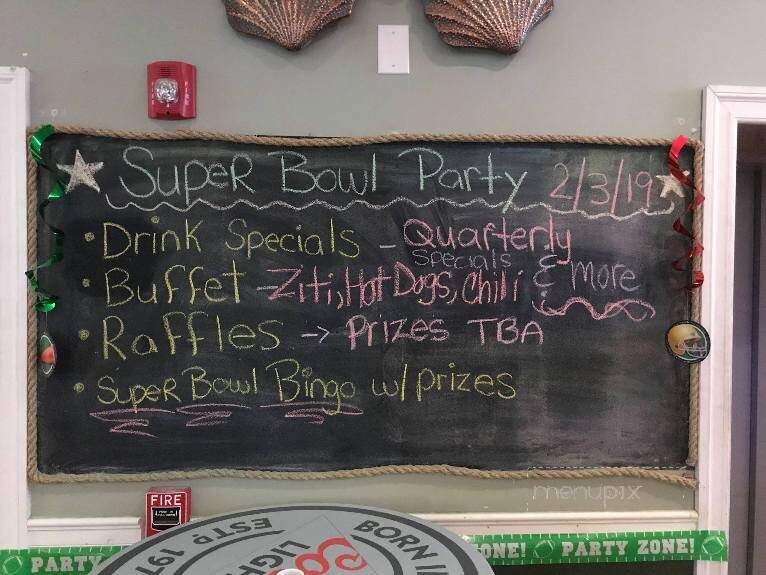 FIRE
FIRE
Super Bowl Party 2/3/19
• Drink Specials - Quarterly
Specials
• Buffet - Ziti, Hot Dogs, Chili & more
• Raffles → Prizes TBA
• Super Bowl Bingo w/prizes
menupix
FIRE
ESTD 197
BORN I
CO
LIGH
PARTY
ONE! PARTY ZONE!